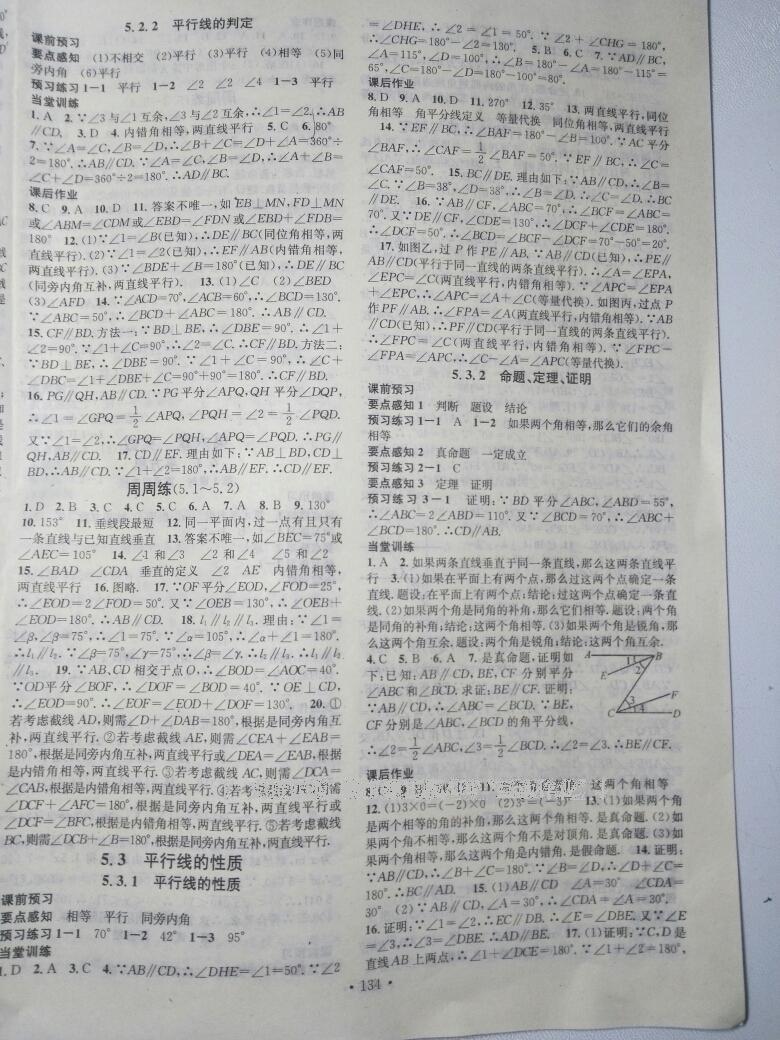 5.2.2 平行线的判定
课前预习
要点感知 (1)不相交 (2)平行 (3)平行 (4)相等 (5)同
旁内角 (6)平行
预习练习1-1 平行 1-2 ∠2 ∠2 ∠4 1-3 平行
当堂训练
1. A 2. ∵∠3与∠1互余,∠3与∠2互余,∴∠1=∠2.∴AB
∥CD. 3. D 4. 内错角相等,两直线平行 5. C 6. 80°
7. ∵∠A=∠C,∠B=∠D,∴∠B+∠C=∠D+∠A=360°÷
2=180°.∴AB∥CD.∵∠A=∠C,∠B=∠D,∴∠A+∠B=
∠C+∠D=360°÷2=180°.∴AD∥BC.
课后作业
8. C 9. A 10. D 11. 答案不唯一,如EB⊥MN,FD⊥MN
或∠ABM=∠CDM或∠EBD=∠FDN或∠EBD+∠FDB=
180° 12. (1)∵∠1=∠B(已知),∴DE∥BC(同位角相等,两
直线平行).(2)∵∠1=∠2(已知),∴EF∥AB(内错角相等,
两直线平行).(3)∵∠BDE+∠B=180°(已知),∴DE∥BC
(同旁内角互补,两直线平行). 13. (1)∠C (2)∠BED
(3)∠AFD 14. ∵∠ACD=70°,∠ACB=60°,∴∠BCD=130°.
∵∠ABC=50°,∴∠BCD+∠ABC=180°.∴AB∥CD.
15. CF∥BD.方法一:∵BD⊥BE,∴∠DBE=90°.∴∠1+
∠2=90°.∵∠1+∠C=90°,∴∠2=∠C.∴CF∥BD.方法二:
∵BD⊥BE,∴∠DBE=90°.∵∠1+∠C=90°,∴∠C+
∠1+∠DBE=∠C+∠DBC=90°+90°=180°.∴CF∥BD.
16. PG∥QH,AB∥CD.∵PG平分∠APQ,QH平分∠DQP,
∴∠1=∠GPQ=1/2∠APQ,∠PQH=∠2=1/2∠PQD.
又∵∠1=∠2,∴∠GPQ=∠PQH,∠APQ=∠PQD.∴PG∥
QH,AB∥CD. 17. CD∥EF.理由如下:∵AB⊥BD,CD⊥
BD,∴AB∥CD.∵∠1+∠2=180°,∴AB∥EF.∴CD∥EF.
周周练(5.1~5.2)
1. D 2. B 3. C 4. C 5. C 6. A 7. A 8. B 9. 130°
10. 153° 11. 垂线段最短 12. 同一平面内,过一点有且只有
一条直线与已知直线垂直 13. 答案不唯一,如∠BEC=75°或
∠AEC=105° 14. ∠1和∠3 ∠2和∠4 ∠5和∠2
15. ∠BAD ∠CDA 垂直的定义 ∠2 AE 内错角相等,
两直线平行 16. 图略. 17. ∵OF平分∠EOD,∠FOD=25°,
∴∠EOD=2∠FOD=50°.又∵∠OEB=130°,∴∠OEB+
∠EOD=180°.∴AB∥CD. 18. l₁∥l₂∥l₃.理由:∵∠1=
∠β,∠β=75°,∴∠1=75°.∵∠α=105°,∴∠α+∠1=180°.
∴l₁∥l₂.∵∠β=75°,∠γ=75°,∴∠β=∠γ.∴l₂∥l₃.∴l₁∥l₂∥
l₃. 19. ∵AB,CD相交于点O,∴∠BOD=∠AOC=40°.
∵OD平分∠BOF,∴∠DOF=∠BOD=40°.∵OE⊥CD,
∴∠EOD=90°.∴∠EOF=∠EOD+∠DOF=130°. 20. ①
若考虑截线AD,则需∠D+∠DAB=180°,根据是同旁内角互
补,两直线平行.②若考虑截线AE,则需∠CEA+∠EAB=
180°,根据是同旁内角互补,两直线平行或∠DEA=∠EAB,根据
是内错角相等,两直线平行.③若考虑截线AC,则需∠DCA=
∠CAB,根据是内错角相等,两直线平行.④若考虑截线FC,则需
∠DCF+∠AFC=180°,根据是同旁内角互补,两直线平行或
∠DCF=∠BFC,根据是内错角相等,两直线平行.⑤若考虑截线
BC,则需∠DCB+∠B=180°,根据是同旁内角互补,两直线平行.
5.3 平行线的性质
5.3.1 平行线的性质
课前预习
要点感知 相等 平行 同旁内角
预习练习1-1 70° 1-2 42° 1-3 95°
当堂训练
1. D 2. A 3. C 4. ∵AB∥CD,∴∠DHE=∠1=50°.∵∠2
=∠DHE,∴∠2=∠1=50°.∵∠2+∠CHG=180°,
∴∠CHG=180°-∠2=130°. 5. B 6. C 7. ∵AD∥BC,
∠A=115°,∠D=100°,∴∠B=180°-∠A=180°-115°=
65°,∠C=180°-∠D=180°-100°=80°.
课后作业
8. D 9. A 10. D 11. 270° 12. 35° 13. 两直线平行,同位
角相等 角平分线定义 等量代换 同位角相等,两直线平行
14. ∵EF∥BC,∴∠BAF=180°-∠B=100°.∵AC平分
∠BAF,∴∠CAF=1/2∠BAF=50°.∵EF∥BC,∴∠C=
∠CAF=50°. 15. BC∥DE.理由如下:∵AB∥CD,∴∠B=
∠C.∵∠B=38°,∠D=38°,∴∠B=∠D.∴∠C=∠D.∴BC
∥DE. 16. ∵AB∥CF,∠ABC=70°,∴∠BCF=∠ABC=
70°.又∵DE∥CF,∠CDE=130°,∴∠DCF+∠CDE=180°.
∴∠DCF=50°.∴∠BCD=∠BCF-∠DCF=70°-50°=20°.
17. 如图乙,过P作PE∥AB.∵AB∥CD(已知),∴PE∥
AB∥CD(平行于同一直线的两条直线平行).∴∠A=∠EPA,
∠EPC=∠C(两直线平行,内错角相等).∵∠APC=∠EPA
+∠EPC,∴∠APC=∠A+∠C(等量代换).如图丙,过点P
作PF∥AB.∴∠FPA=∠A(两直线平行,内错角相等).∵AB
∥CD(已知),∴PF∥CD(平行于同一直线的两条直线平行).
∴∠FPC=∠C(两直线平行,内错角相等).∵∠FPC-
∠FPA=∠APC,∴∠C-∠A=∠APC(等量代换).
5.3.2 命题、定理、证明
课前预习
要点感知1 判断 题设 结论
预习练习1-1 A 1-2 如果两个角相等,那么它们的余角
相等
要点感知2 真命题 一定成立
预习练习2-1 C
要点感知3 定理 证明
预习练习3-1 证明:∵BD平分∠ABC,∠ABD=55°,
∴∠ABC=2∠ABD=110°.又∵∠BCD=70°,∴∠ABC+
∠BCD=180°.∴CD∥AB.
当堂训练
1. A 2. 如果两条直线垂直于同一条直线,那么这两条直线平
行 3. (1)如果在平面上有两个点,那么过这两个点确定一条
直线.题设:在平面上有两个点;结论:过这两个点确定一条直
线.(2)如果两个角是同角的补角,那么它们相等.题设:两个角
是同角的补角;结论:这两个角相等.(3)如果两个角是锐角,那
么这两个角互余.题设:两个角是锐角;结论:这两个角互余.
4. C 5. B 6. A 7. 是真命题,证明如
下:已知:AB∥CD,BE,CF分别平分
∠ABC和∠BCD.求证:BE∥CF.证明:
∵AB∥CD,∴∠ABC=∠BCD.∵BE,
CF分别是∠ABC,∠BCD的角平分线,
∴∠2=1/2∠ABC,∠3=1/2∠BCD.∴∠2=∠3.∴BE∥CF.
A B 1 2 E F 3 4 C D
课后作业
这两个角相等
12. (1)3×0=(-2)×0 (2)3²=(-3)² 13. (1)如果两个角
是两个相等的角的补角,那么这两个角相等.是真命题.(2)如
果两个角不相等,那么这两个角不是对顶角.是真命题.(3)如
果两个角相等,那么这两个角是内错角.是假命题. 14. 证明:
∵AB∥CD,∴∠B+∠C=180°.∵∠B=∠D,∴∠D+∠C=
180°.∴BC∥AD. 15. (1)AB∥CD ∠A=30° ∠CDA=
30° (2)∵AB∥CD,∠A=30°,∴∠CDA=∠A=30°.
16. 证明:∵∠1=∠2,∴EC∥DB.∴∠E=∠DBE.又∵∠E
=∠3,∴∠3=∠DBE.∴AD∥BE. 17. (1)证明:∵C,D是
直线AB上两点,∴∠1+∠DCE=180°.∵∠1+∠2=180°,
• 134 •